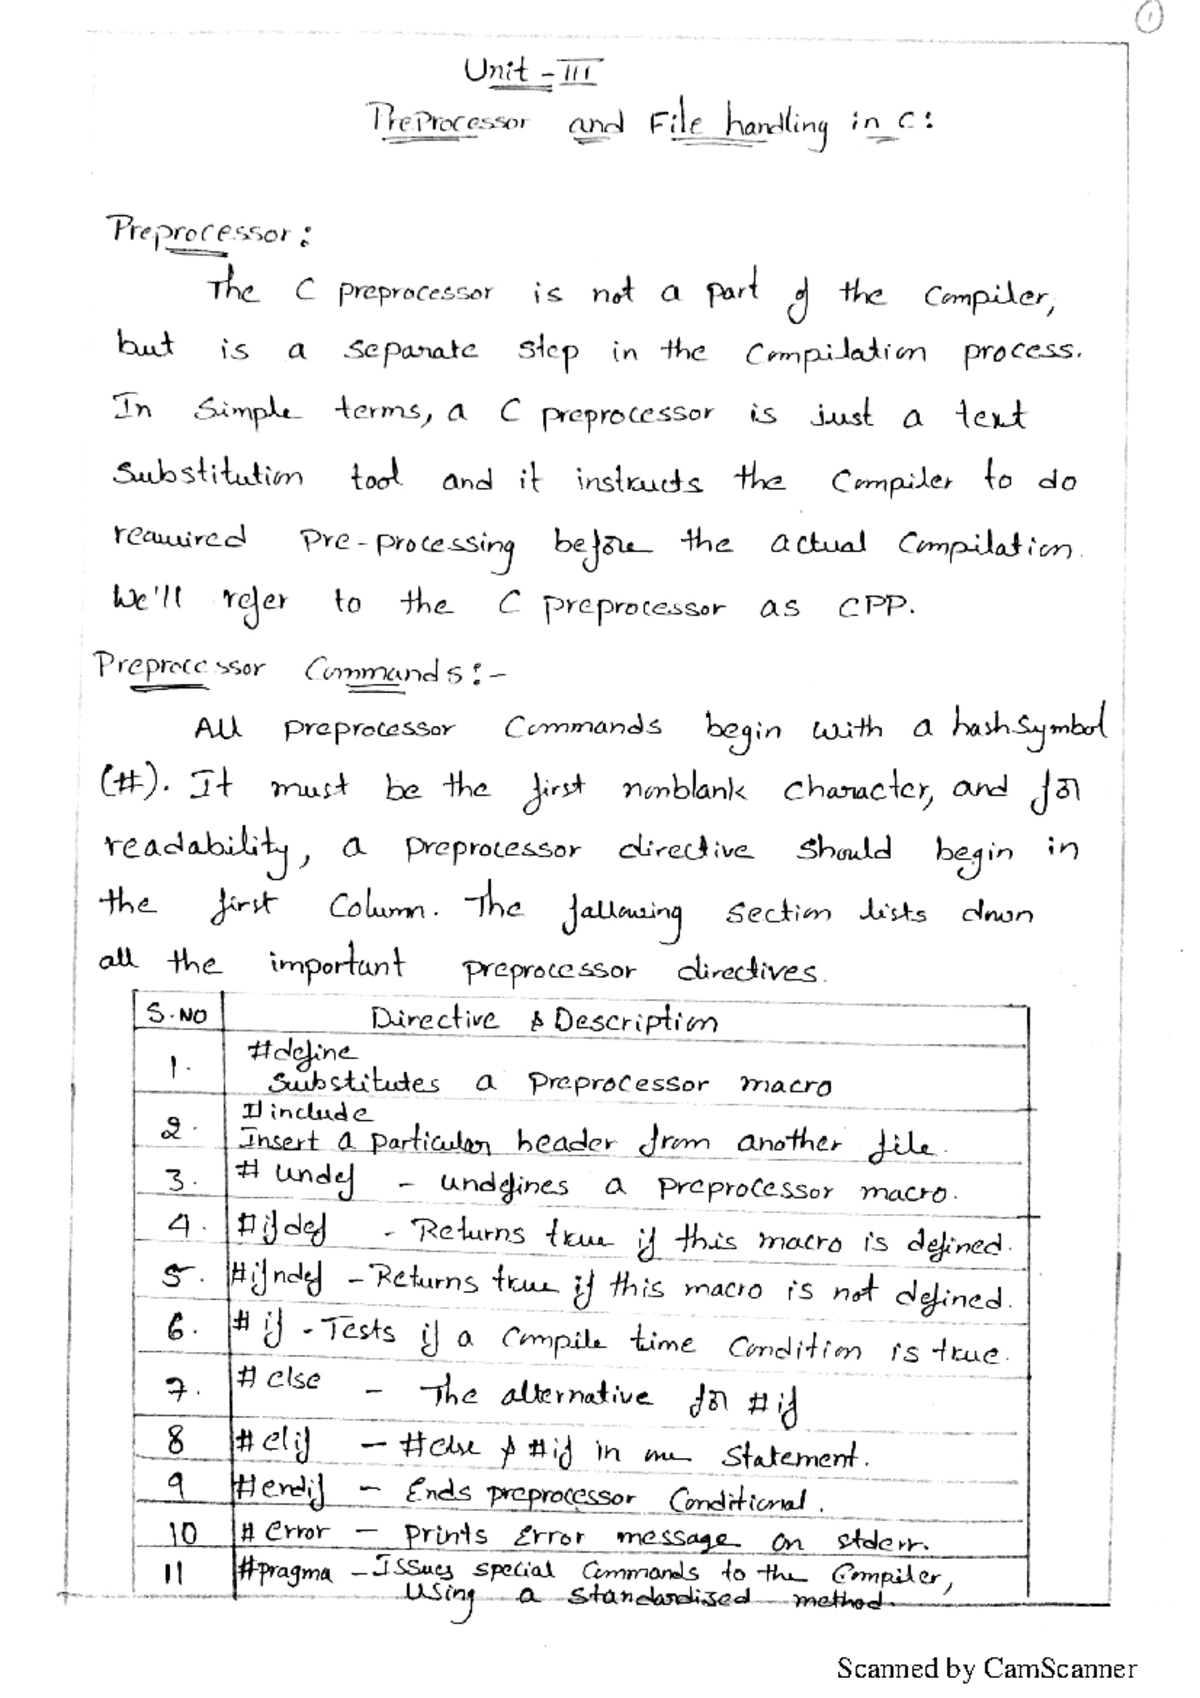 1
Unit - III
PreProcessor and File handling in C:
Preprocessor:
The C preprocessor is not a part of the Compiler,
but is a separate step in the Compilation process.
In Simple terms, a C preprocessor is just a text
Substitution tool and it instructs the Compiler to do
required Pre-processing before the actual Compilation.
We'll refer to the C preprocessor as CPP.
Preprocessor Commands:-
All preprocessor Commands begin with a hash Symbol
(#). It must be the first nonblank character, and for
readability, a preprocessor directive should begin in
the first Column. The following section lists down
all the important preprocessor directives.
S.NO Directive & Description
1. #define
Substitutes a preprocessor macro
2. #include
Insert a particular header from another file.
3. # undef - undefines a preprocessor macro.
4. #ifdef - Returns true if this macro is defined.
5. #ifndef - Returns true if this macro is not defined.
6. # if - Tests if a compile time Condition is true.
7. # else - The alternative for #if
8 # elif - #else & #if in one Statement.
9 #endif - Ends preprocessor Conditional.
10 # error - prints Error message on stderr.
11 #pragma - Issues special Commands to the Compiler,
Using a standardised method.
Scanned by CamScanner